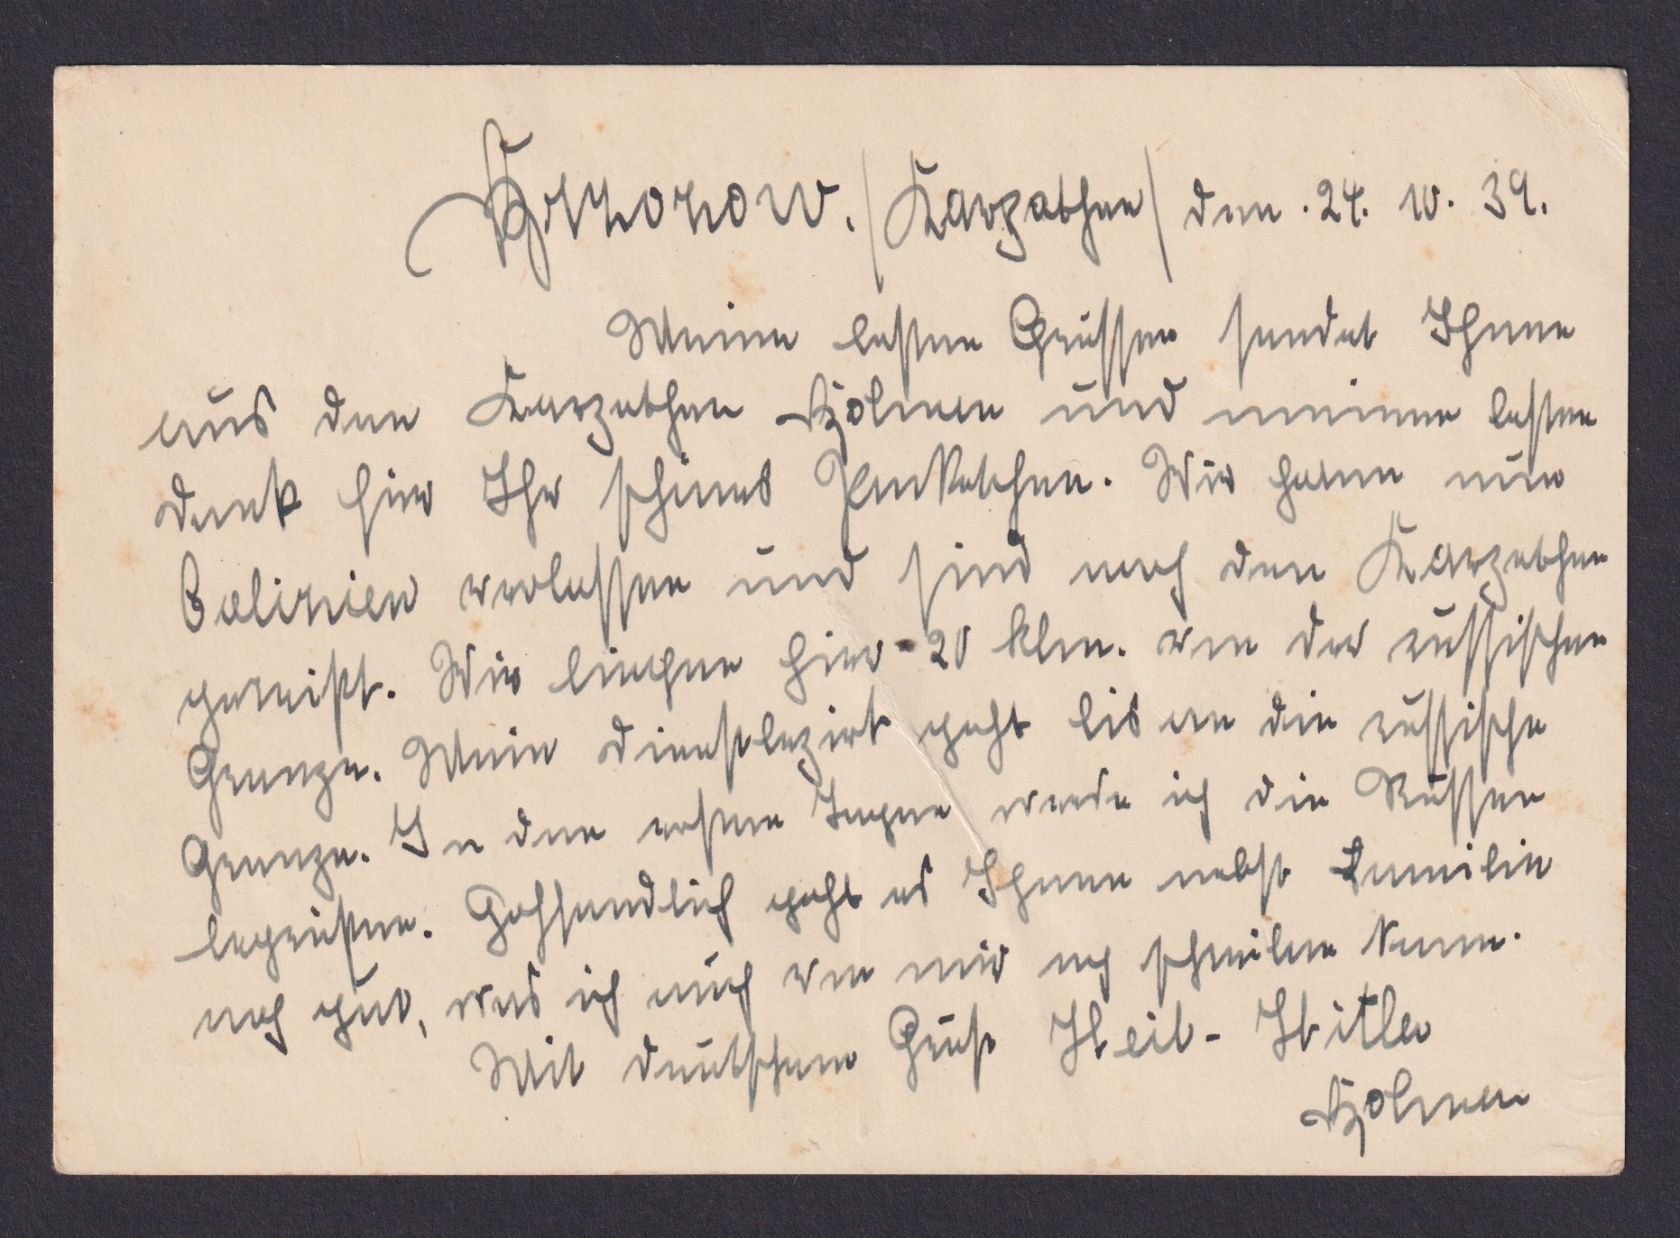 Brzozow. /Karpathen/ den .24. 10. 39.
Meine besten Grüsse sendet Ihnen
aus den Karpathen und meinen besten
Dank für Ihr schönes Paketchen. Wir haben nun
Galizien verlassen und sind nach den Karpathen
gereißt. Wir liegen hier 20 klm. von der russischen
Grenze. Mein Dienstbezirk geht bis an die russische
Grenze. In den ersten Tagen werde ich die Russen
begrüßen. Hoffendlich geht es Ihnen nebst Familie
noch gut, was ich auch von mir noch schreiben kann.
Mit deutschem Gruß Heil-Hitler